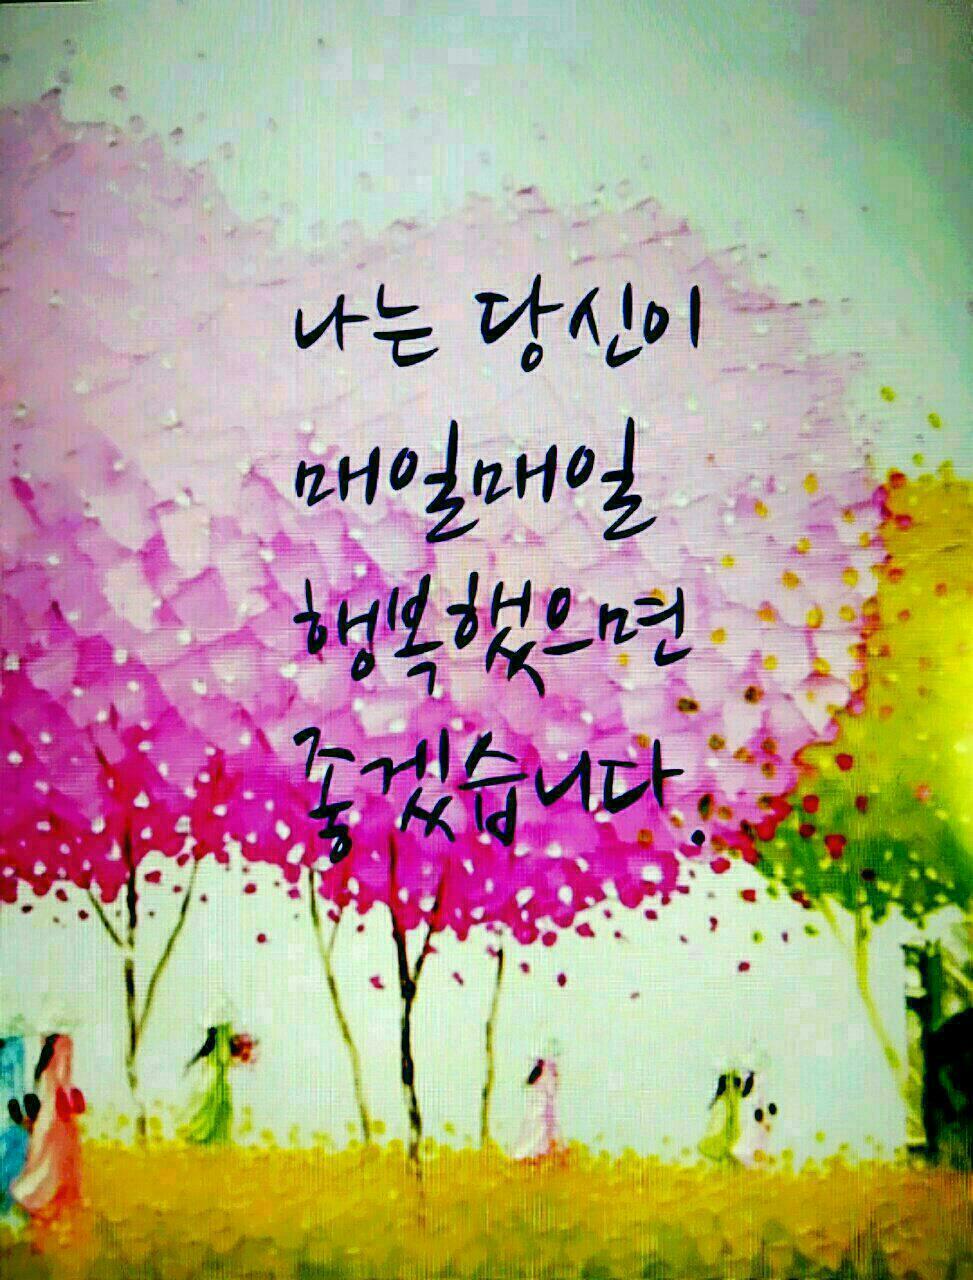 나는 당신이
매일매일
행복했으면
좋겠습니다.